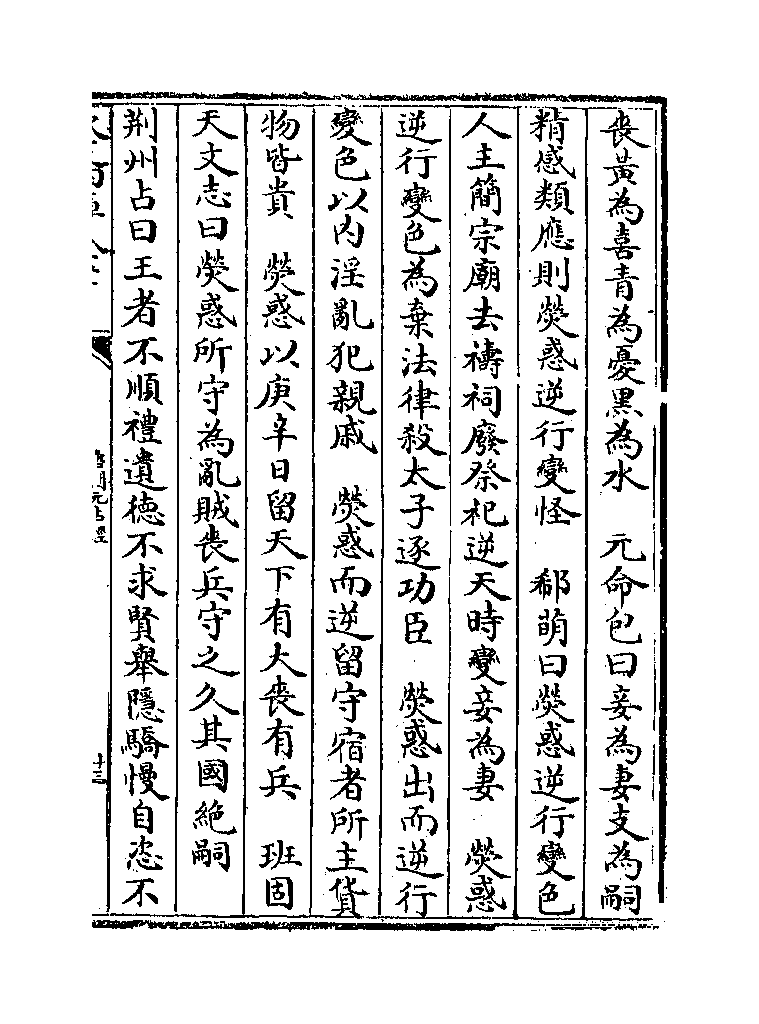 喪黃為喜青為憂黑為水　元命包曰妾為妻支為嗣
精感類應則熒惑逆行變怪　郗萌曰熒惑逆行變色
人主簡宗廟去禱祠廢祭祀逆天時變妾為妻　熒惑
逆行變色為棄法律殺太子逐功臣　熒惑出而逆行
變色以內淫亂犯親戚　熒惑而逆留守宿者所主貨
物皆貴　熒惑以庚辛日留天下有大喪有兵　班固
天文志曰熒惑所守為亂賊喪兵守之久其國絶嗣
荆州占曰王者不順禮遺德不求賢舉隱驕慢自恣不
唐開元占經
十三